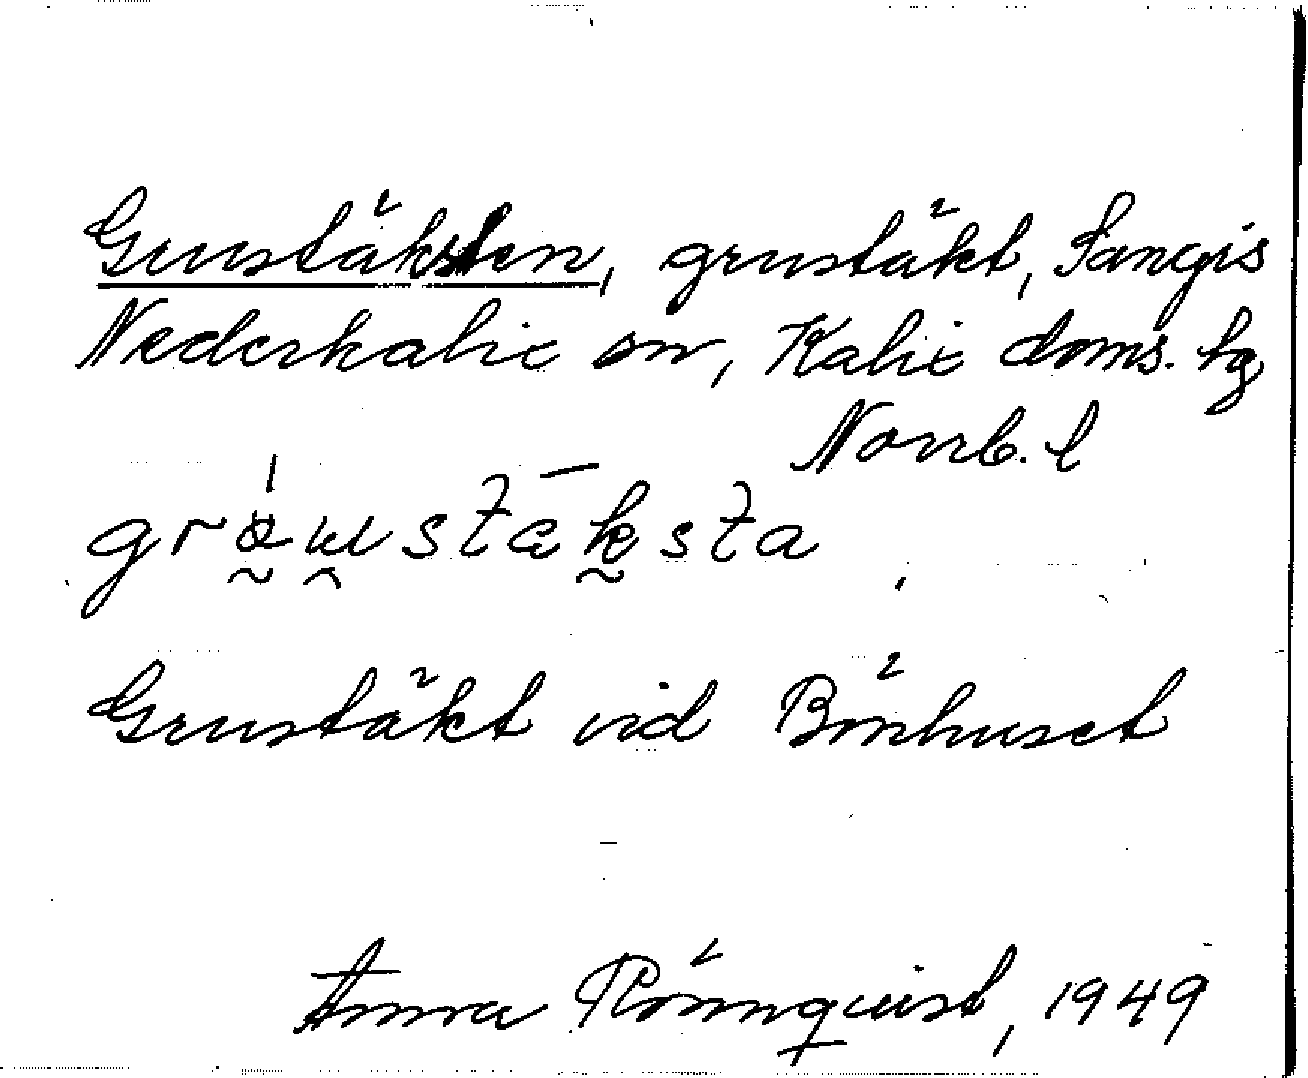 Grustäksten, grustäkt, Sangis
Nederkalix sn, Kalix doms. hg
Norrb. l
Grustäkt vid Bönhuset
Anna Rönnquist, 1949